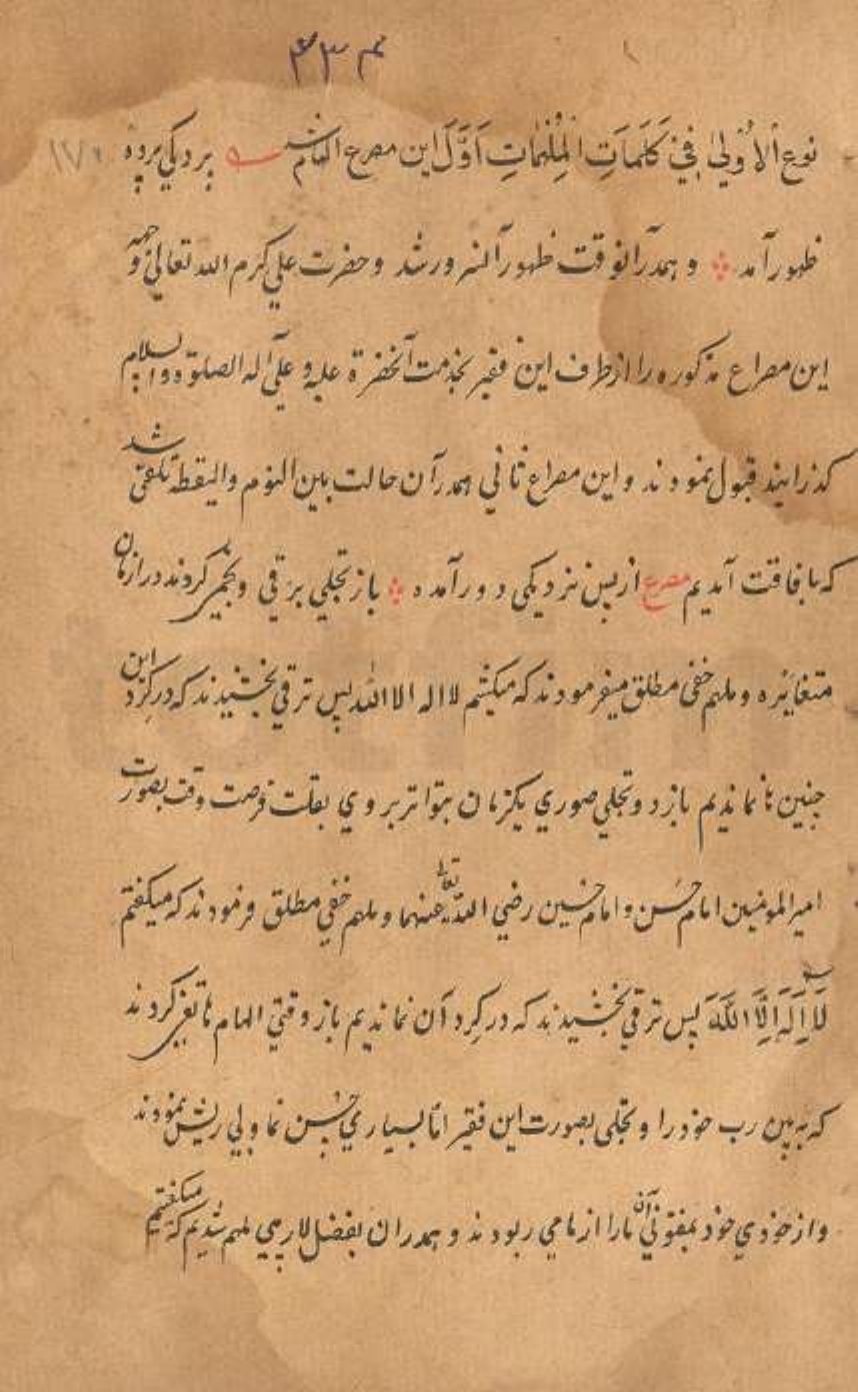 م ٣٣
نوع الاُولیٰ فِی کَلَمَاتِ المُلْهَمَاتِ اَوَّلَ این مصرع الهام شد بردگی پرده
ظهور آمد و همدرانوقت ظهور آنسرور شد و حضرت علی کرم الله تعالی وجهه
این مصراع مذکوره را از طرف این فقیر بخدمت آنحضرة علیه و علی آله الصلوة والسلام
کذرانیند قبول نمودند و این مصراع ثانی همدرآن حالت بین النوم والیقظه تلقی شد
که بافاقت آمدیم مصرع از پس نزدیکی دور آمده باز تجلی برقی کردند در ازمان
متغایره و ملهم خفی مطلق میفرمودند که میکشم لا اله الا الله پس ترقی بخشیدند که در کرد این
چنین ها نماندیم بازد و تجلی صوری یکزمان بتواتر بروی بقلت فرصت وقت بصورت
امیرالمومنین امام حسن و امام حسین رضی الله تعالی عنهما و ملهم خفی مطلق فرمودند که میکفتم
لَا اِلَهَ اِلَّا اللَّهَ پس ترقی بخشیدند که در کرد آن نماندیم باز وقتی الهام کردند
که به بین رب خود را و تجلی بصورت این فقیر اما بسیاری حسن نما ولی ریش نمودند
و از خودی خود آن ما را از ما می ربودند و همدران بفضل لاریبی ملهم شدیم که میکفتیم